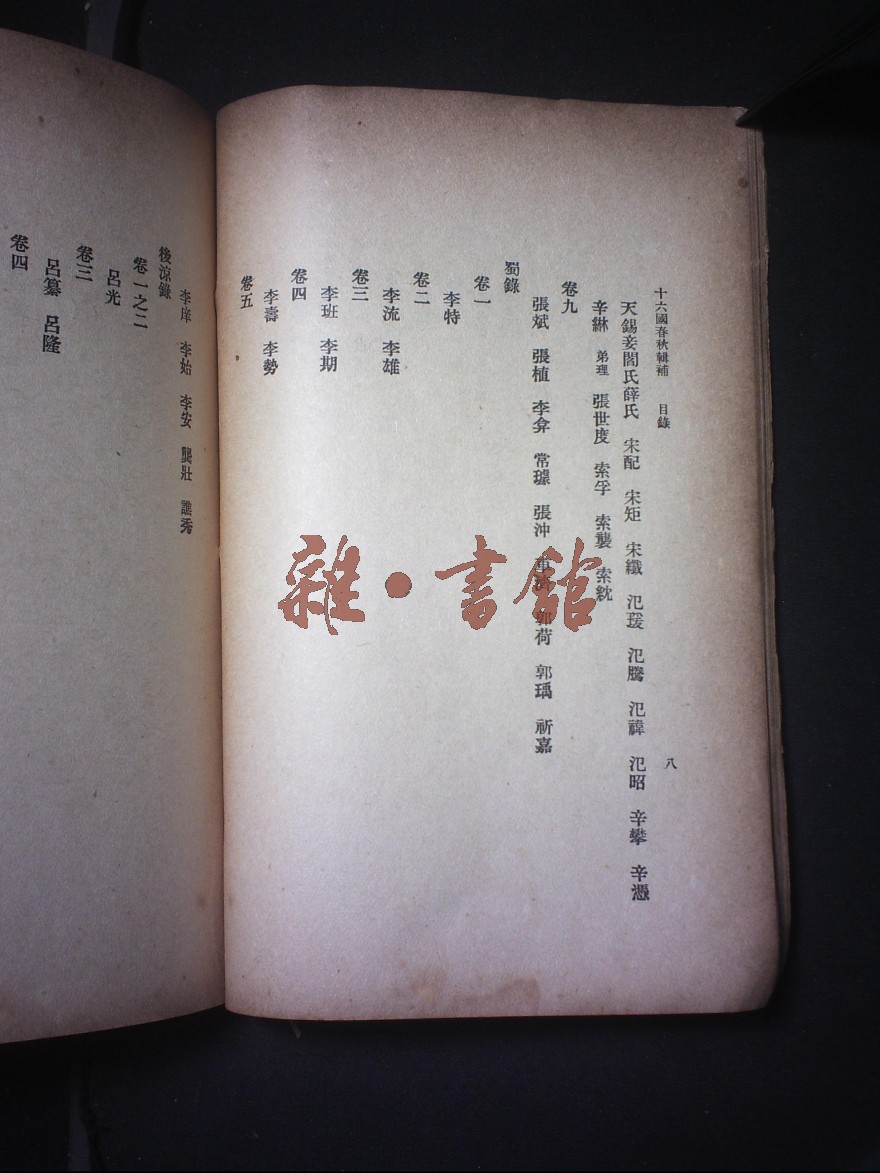 十六國春秋輯補 目錄 八
天錫妾閻氏薛氏 宋配 宋矩 宋纖 氾瑗 氾騰 氾禕 氾昭 辛攀 辛憑
辛綝 弟理 張世度 索孚 索襲 索紞
卷九
張斌 張植 李弇 常璩 張沖 郭荷 郭瑀 祈嘉
蜀錄
卷一
李特
卷二
李流 李雄
卷三
李班 李期
卷四
李壽 李勢
卷五
李庠 李始 李安 龔壯 譙秀
後涼錄
卷一之二
呂光
卷三
呂纂 呂隆
卷四
雜·書館